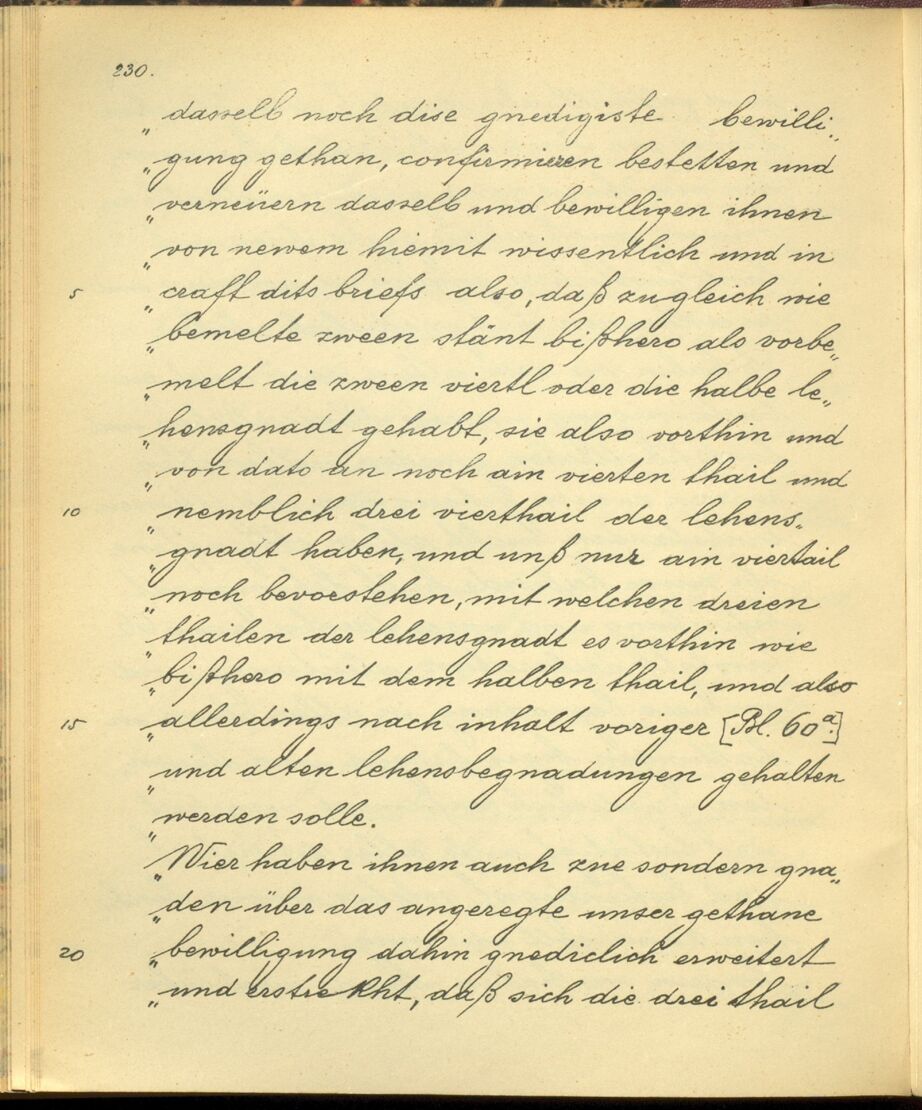 230.
„ dasselb noch dise gnedigiste bewilli„
„ gung gethan, confirmieren bestetten und
„ verneüern dasselb und bewilligen ihnen
„ von newem hiemit wissentlich und in
5 „ craft dits briefs also, daß zugleich wie
„ bemelte zween stänt bißhero als vorbe„
„ melt die zween viertl oder die halbe le„
„ hensgnadt gehabt, sie also vorthin und
„ von dato an noch ain vierten thail und
10 „ nemblich drei vierthail der lehens„
„ gnadt haben, und unß nur ain viertail
„ noch bevorstehen, mit welchen dreien
„ thailen der lehensgnadt es vorthin wie
„ bißhero mit dem halben thail, und also
15 „ allerdings nach inhalt voriger [Bl. 60a.]
„ und alten lehensbegnadungen gehalten
„ werden solle.
„ Wier haben ihnen auch zue sondern gna„
„ den über das angeregte unser gethane
20 „ bewilligung dahin gnediclich erweitert
„ und erstrekht, daß sich die drei thail